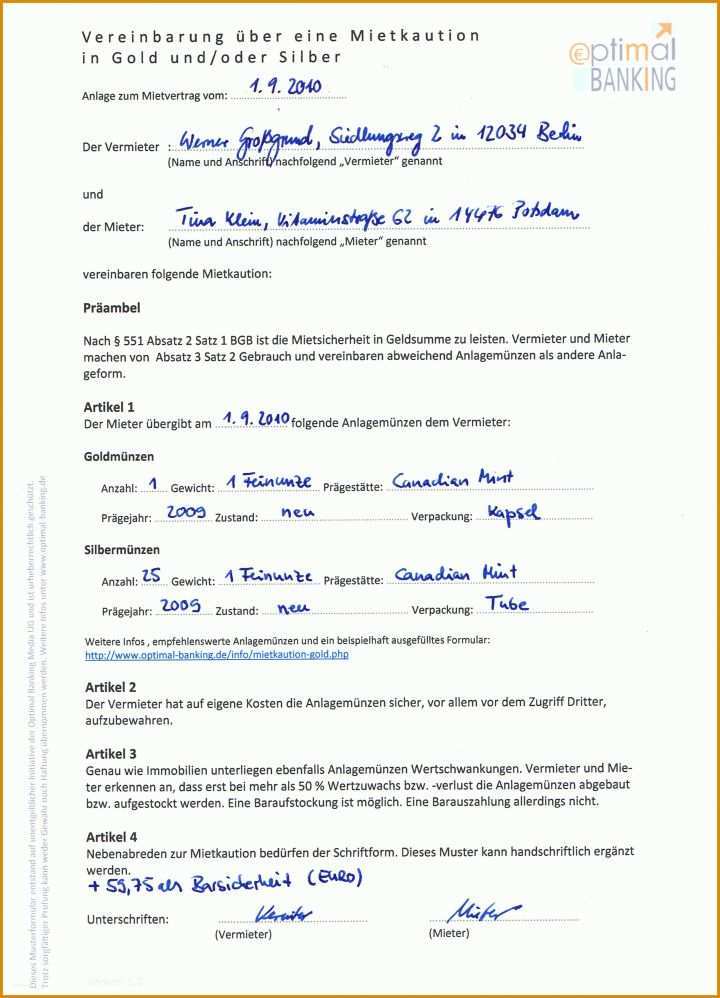 Vereinbarung über eine Mietkaution
in Gold und/oder Silber
€ptimal
BANKING
Anlage zum Mietvertrag vom: 1.9.2010
Der Vermieter : Werner Großgrund, Siedlungsweg 2 in 12034 Berlin
(Name und Anschrift) nachfolgend „Vermieter" genannt
und
der Mieter: Tina Klein, Vitaminstraße 62 in 14476 Potsdam
(Name und Anschrift) nachfolgend „Mieter" genannt
vereinbaren folgende Mietkaution:
Präambel
Nach § 551 Absatz 2 Satz 1 BGB ist die Mietsicherheit in Geldsumme zu leisten. Vermieter und Mieter
machen von Absatz 3 Satz 2 Gebrauch und vereinbaren abweichend Anlagemünzen als andere Anla-
geform.
Artikel 1
Der Mieter übergibt am 1.9.2010 folgende Anlagemünzen dem Vermieter:
Goldmünzen
Anzahl: 1 Gewicht: 1 Feinunze Prägestätte: Canadian Mint
Prägejahr: 2009 Zustand: neu Verpackung: Kapsel
Silbermünzen
Anzahl: 25 Gewicht: 1 Feinunze Prägestätte: Canadian Mint
Prägejahr: 2009 Zustand: neu Verpackung: Tube
Weitere Infos , empfehlenswerte Anlagemünzen und ein beispielhaft ausgefülltes Formular:
http://www.optimal-banking.de/info/mietkaution-gold.php
Artikel 2
Der Vermieter hat auf eigene Kosten die Anlagemünzen sicher, vor allem vor dem Zugriff Dritter,
aufzubewahren.
Artikel 3
Genau wie Immobilien unterliegen ebenfalls Anlagemünzen Wertschwankungen. Vermieter und Mie-
ter erkennen an, dass erst bei mehr als 50 % Wertzuwachs bzw. -verlust die Anlagemünzen abgebaut
bzw. aufgestockt werden. Eine Baraufstockung ist möglich. Eine Barauszahlung allerdings nicht.
Artikel 4
Nebenabreden zur Mietkaution bedürfen der Schriftform. Dieses Muster kann handschriftlich ergänzt
werden.
+ 59,75 als Barsicherheit (EURO)
Unterschriften: Vermieter Mieter
(Vermieter) (Mieter)
Dieses Musterformular entstand auf unentgeltlicher Initiative der Optimal Banking Media UG und ist urheberrechtlich geschützt.
Trotz sorgfältiger Prüfung kann weder Gewähr noch Haftung übernommen werden. Weitere Infos unter www.optimal-banking.de